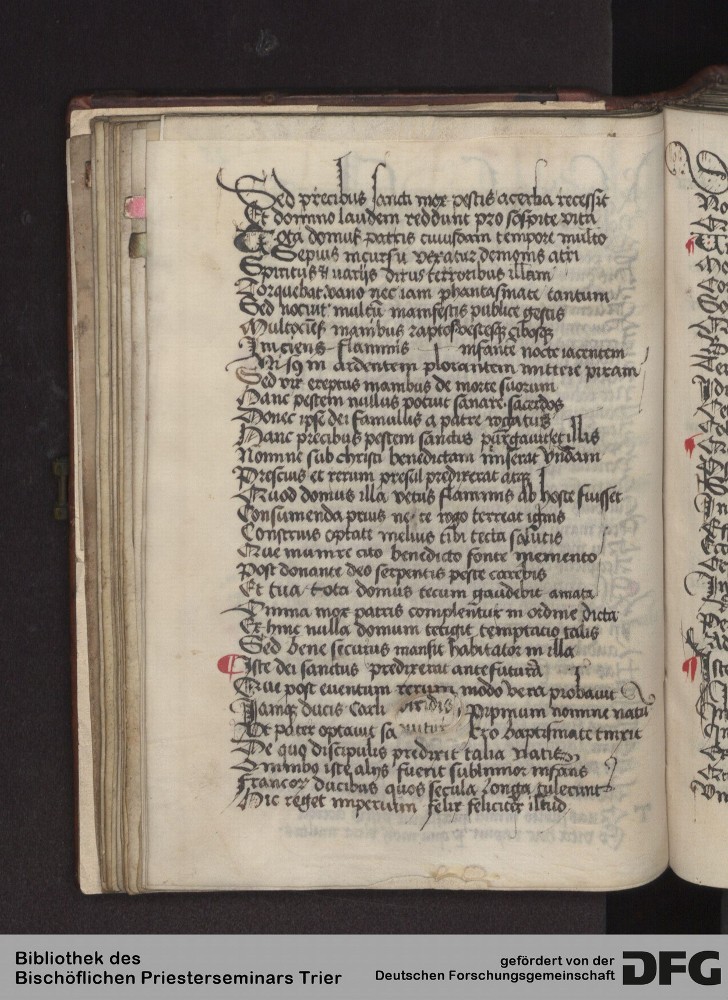 Sed precibus sancti mox pestis acerba recessit
Et domino laudem reddunt pro sospite vita
Tota domus patris cuiusdam tempore multo
Sepius incursu vexatur demonis atri
Spiritus et varijs dirus terroribus illam
Torquebat vano nec iam phantasmate tantum
Sed nocuit multum manifestis publice gestis
manibus raptos vestesque cibosque
flammis infante nocte iacentem
in ardentem plorantem mittere piram
Sed vir ereptus manibus de morte suorum
Hanc pestem nullus potuit sanare sacerdos
Donec ipse dei famulus a patre rogatus
Hanc precibus pestem sanctus purgavit et illis
Nomine sub christi benedictam miserat undam
Prescius et rerum presul predixerat atque
Quod domus illa vetus flammis ab hoste fuisset
Consumenda prius ne te rogo terreat ignis
Construis optate melius tibi tecta salutis
Que munire cito benedicto fonte memento
Post donante deo serpentis peste carebis
Et tua tota domus tecum gaudebit amata
Omnia mox patris complentur in ordine dicta
Ex hinc nulla domum tetigit temptacio talis
Sed bene securus mansit habitator in illa
Iste dei sanctus predixerat ante futura
Que post eventum rerum modo vera probavit
Iamque ducis Carli Pipinum nomine natum
Et pater optavit sa baptismate tinxit
De quo discipulis predixit talia vatis
Omnibus iste alijs fuerit sublimior infans
Francorum ducibus quos secula longa tulerunt
Hic reget imperium felix feliciter illud
Bibliothek des
Bischöflichen Priesterseminars Trier
gefördert von der
Deutschen Forschungsgemeinschaft
DFG